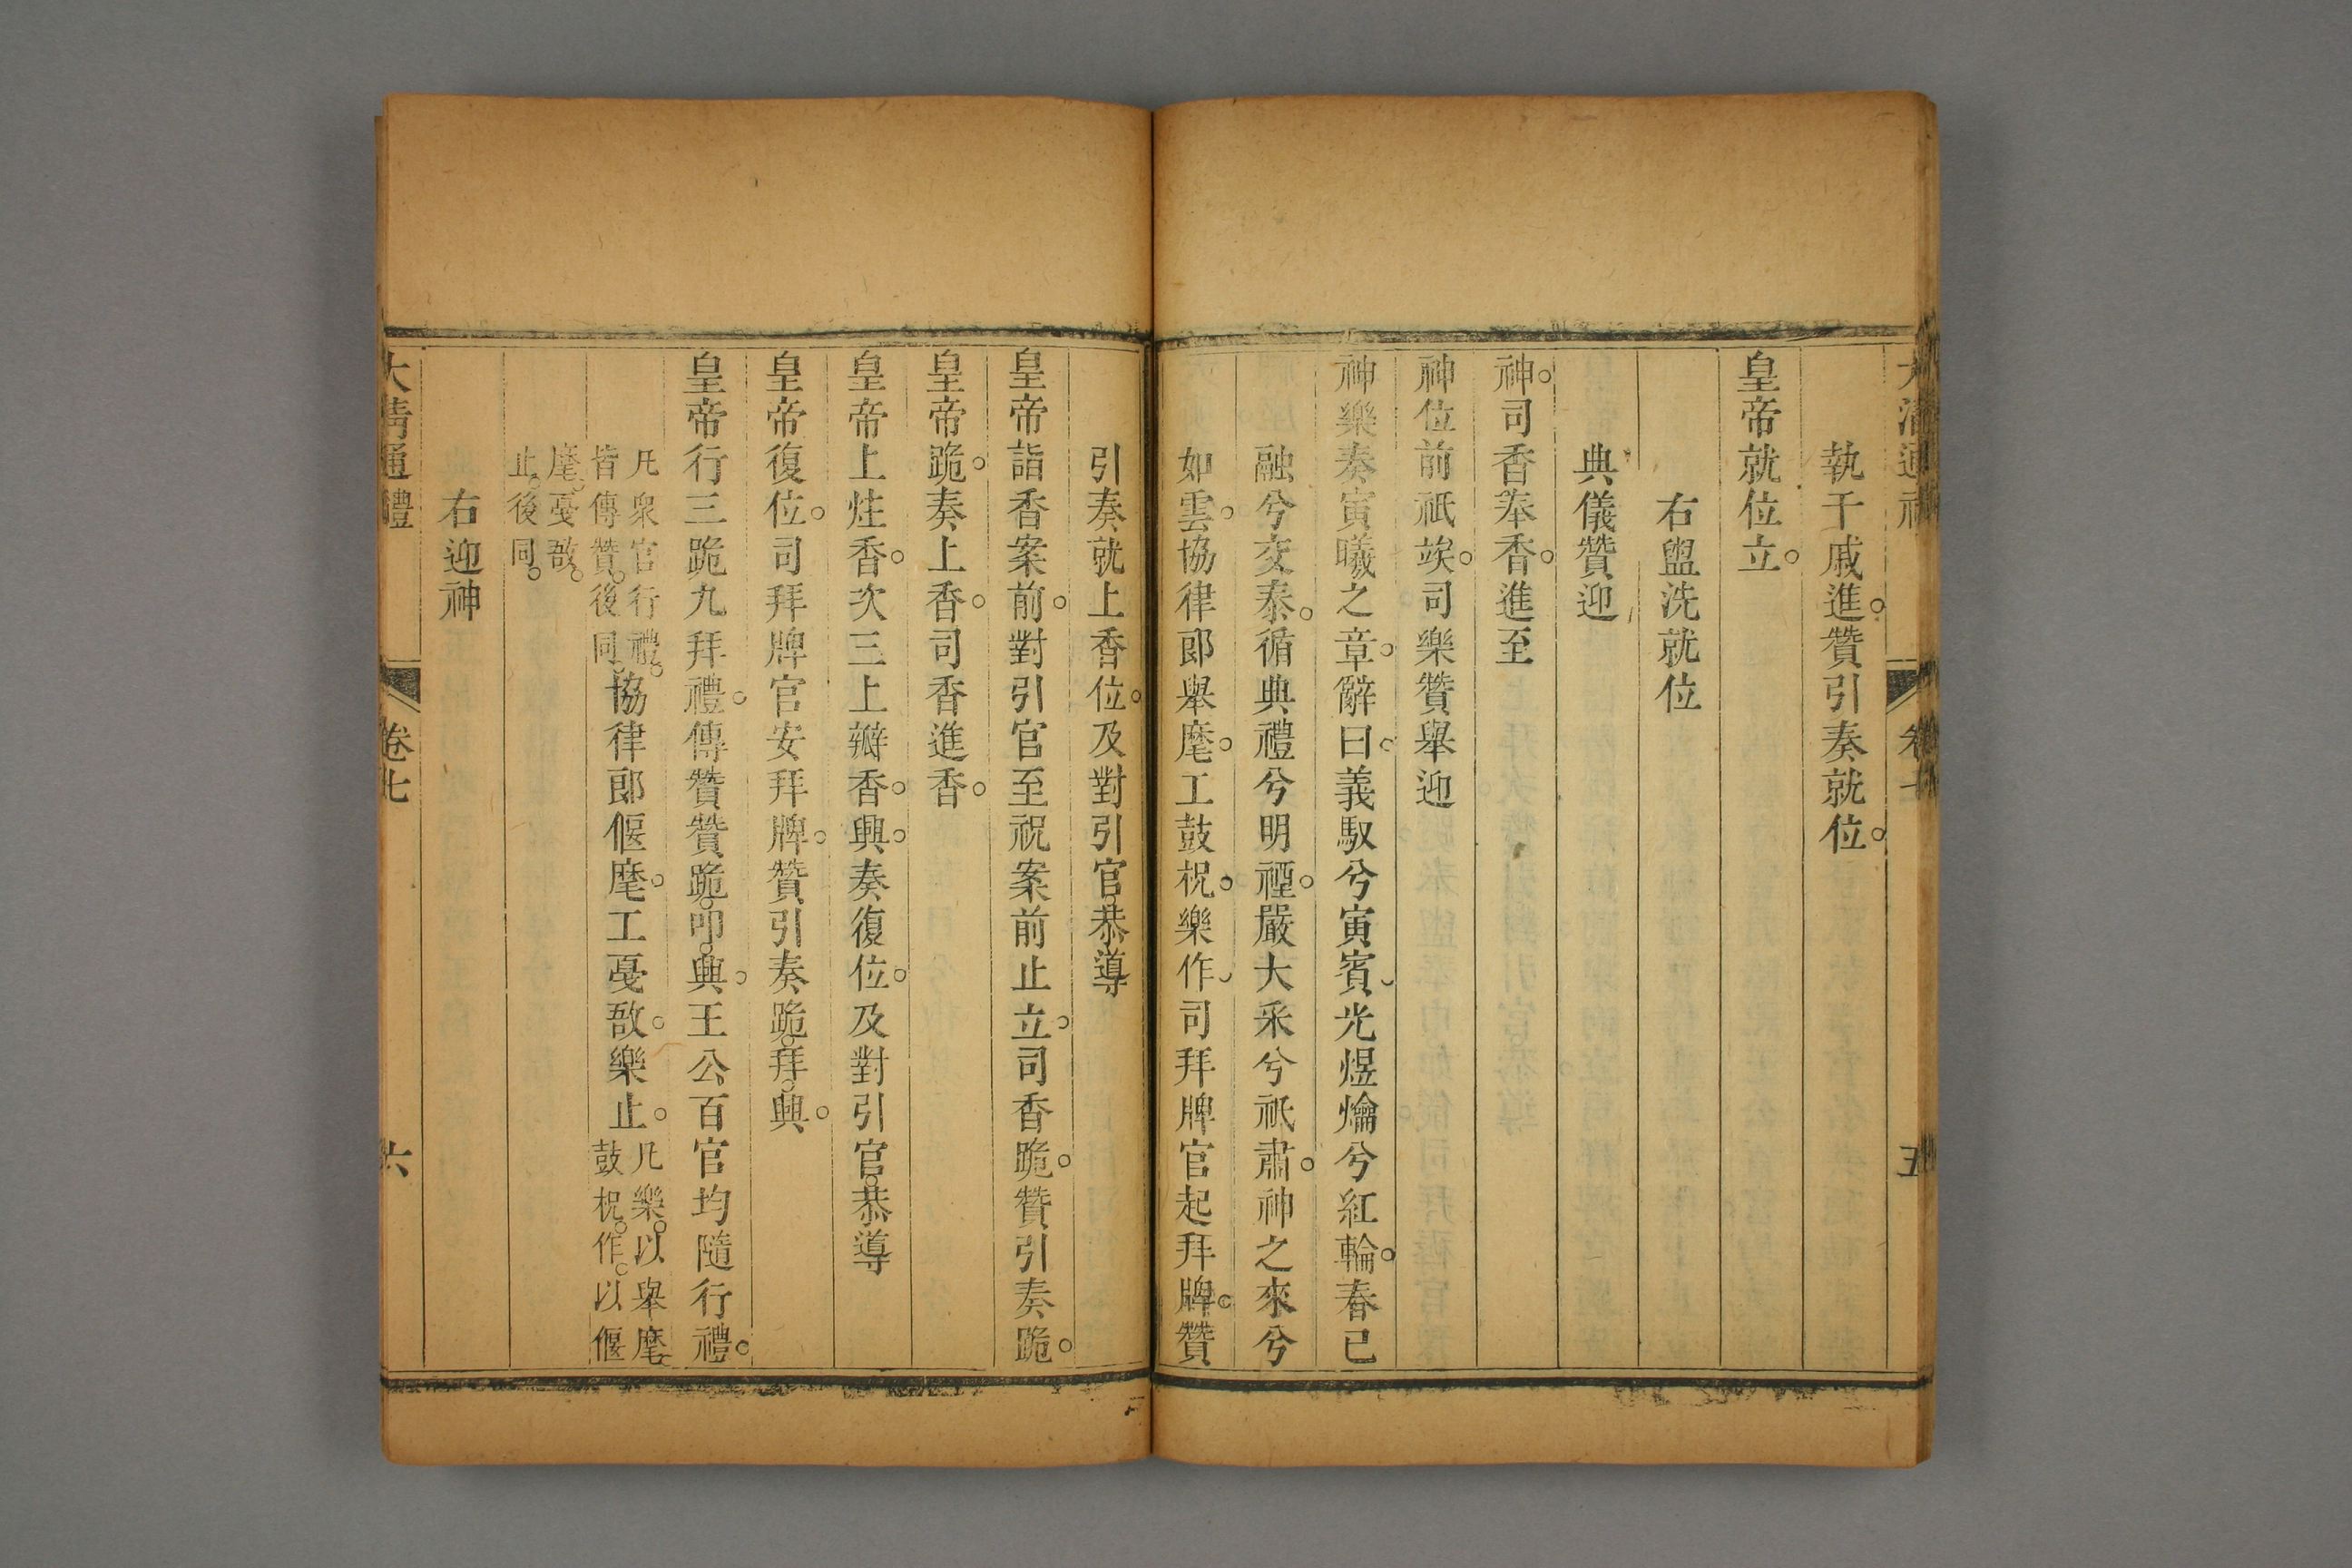 大清通禮 卷七 五
執干戚進。贊引奏就位。
皇帝就位立。
右盥洗就位
典儀贊迎
神。司香奉香。進至
神位前祇竢。司樂贊舉迎
神樂奏寅曦之章。辭曰。義馭兮寅賓。光煜爚兮紅輪。春已
融兮交泰。循典禮兮明禋。嚴大采兮祇肅。神之來兮
如雲。協律郎舉麾。工鼓柷。樂作。司拜牌官起拜牌。贊
引奏就上香位。及對引官。恭導
皇帝詣香案前。對引官至祝案前止立。司香跪。贊引奏跪。
皇帝跪。奏上香。司香進香。
皇帝上炷香。次三上瓣香。興。奏復位。及對引官。恭導
皇帝復位。司拜牌官安拜牌。贊引奏跪。拜。興。
皇帝行三跪九拜禮。傳贊贊跪。叩。興。王公百官均隨行禮。
凡衆官行禮。
皆傳贊。後同。
協律郎偃麾。工戛敔。樂止。
凡樂。以舉麾
鼓柷。作。以偃
麾。戛敔。
止。後同。
右迎神
大清通禮 卷七 六